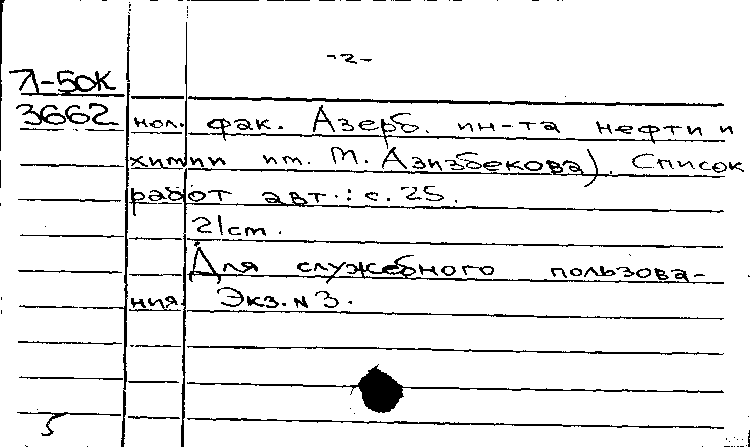 -2-
Л-50К
3662
нол. фак. Азерб. ин-та нефти и
химии им. М. Азизбекова). Список
работ авт.: с. 25.
21cm.
Для служебного пользова-
ния. Экз. N 3.
5